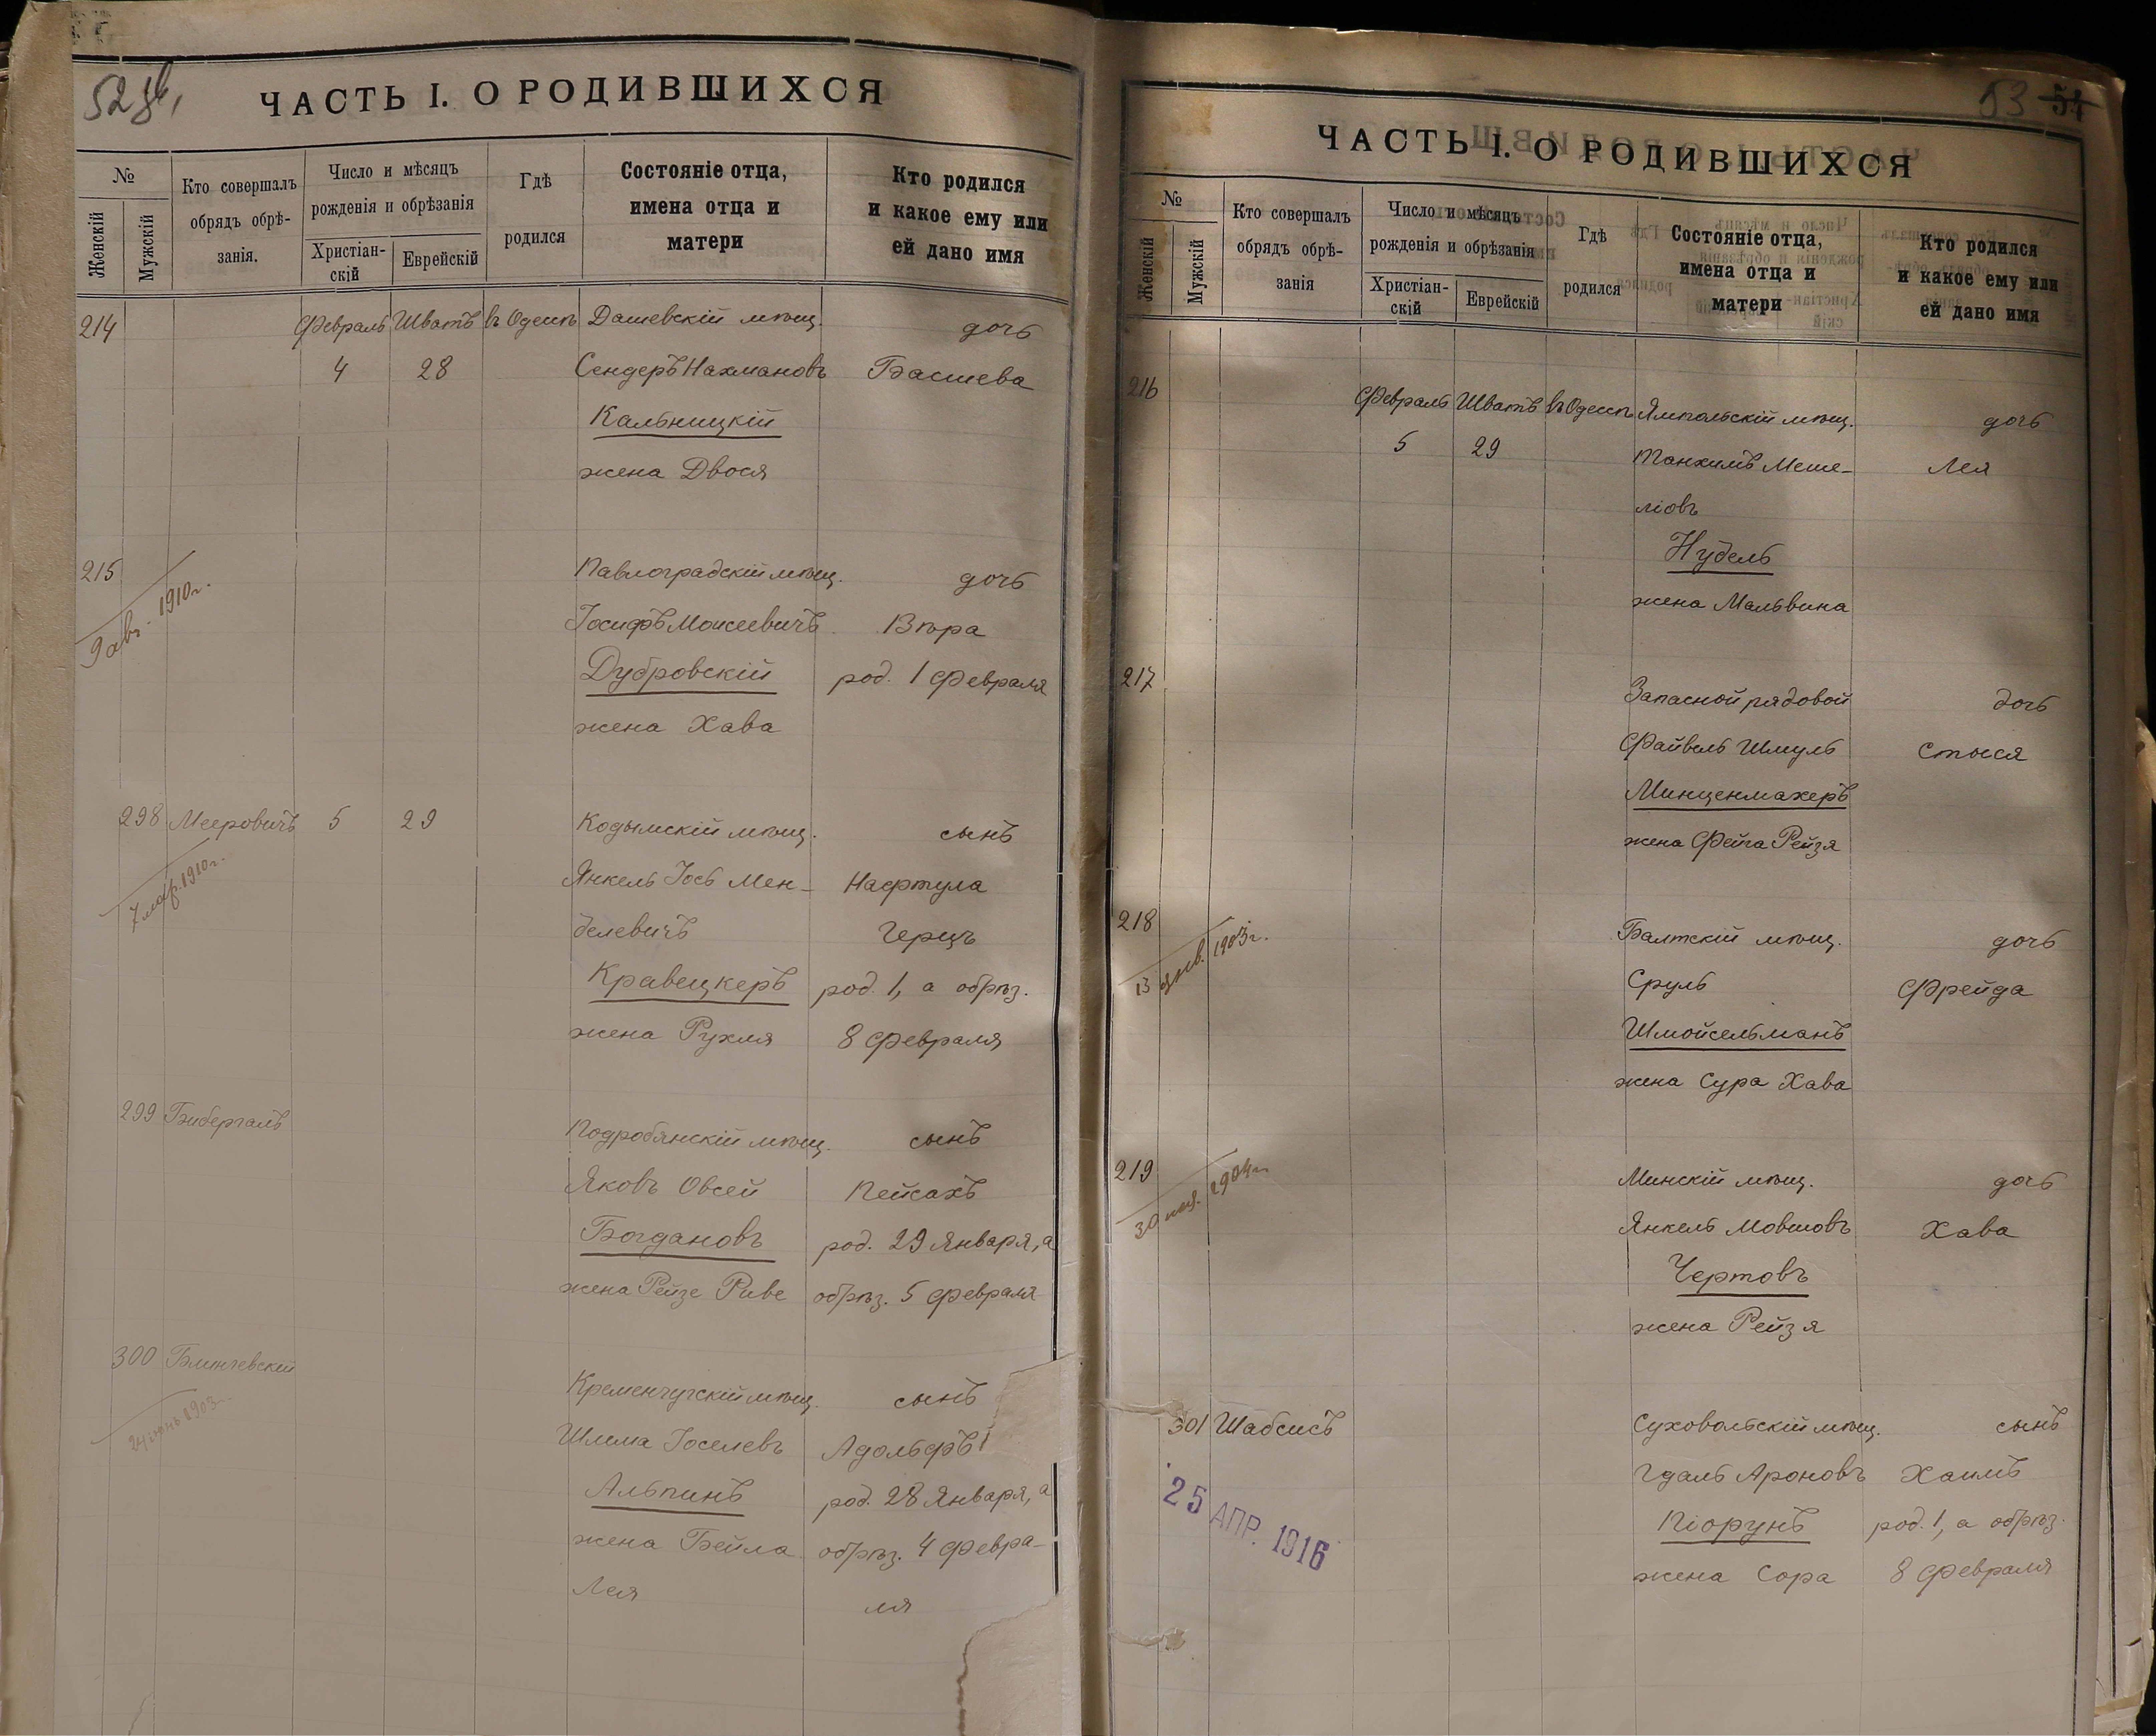 ЧАСТЬ I. О РОДИВШИХСЯ
№
Женскій
Мужскій
Кто совершалъ
обрядъ обрѣ-
занія.
Число и мѣсяцъ
рожденія и обрѣзанія
Христіан-
скій
Еврейскій
Гдѣ
родился
Состояніе отца,
имена отца и
матери
Кто родился
и какое ему или
ей дано имя
214 Февраль Шватъ въ Одессѣ Дашевскій мѣщ. дочь
4 28 Сендеръ Нахмановъ Басшева
Кальницкій
жена Двося
215 Павлоградскій мѣщ. дочь
9 авг. 1910 г.
Іосифъ Моисеевичъ Вѣра
Дубровскій род. 1 Февраля
жена Хава
298 Мееровичъ 5 29 Кодымскій мѣщ. сынъ
7 мар. 1910 г.
Янкель Іось Мен- Нафтула
делевичъ Герцъ
Кравецкеръ род. 1, а обрѣз.
жена Рухля 8 февраля
299 Бибергалъ Подробянскій мѣщ. сынъ
Яковъ Овсей Пейсахъ
Богдановъ род. 29 Января, а
жена Рейзе Риве обрѣз. 5 февраля
300 Кременчугскій мѣщ. сынъ
1903 г.
Шлема Іоселевъ Адольфъ
Альпинъ род. 28 Января, а
жена Бейла обрѣз. 4 февра-
Лея ля
53 54
ЧАСТЬ I. О РОДИВШИХСЯ
№
Женскій
Мужскій
Кто совершалъ
обрядъ обрѣ-
занія
Число и мѣсяцъ
рожденія и обрѣзанія
Христіан-
скій
Еврейскій
Гдѣ
родился
Состояніе отца,
имена отца и
матери
Кто родился
и какое ему или
ей дано имя
216 Февраль Шватъ въ Одессѣ Ямпольскій мѣщ. дочь
5 29 Танхимъ Меше- Лея
ліовъ
Нубель
жена Мальвина
217 Запасной рядовой дочь
Файвель Шмуль Стыся
Минценмахеръ
жена Фейга Рейзя
218 Балтскій мѣщ. дочь
13 янв. 1903 г.
Сруль Фрейда
Шмойсельманъ
жена Сура Хава
219 Минскій мѣщ. дочь
30 1904 г.
Янкель Мовшовъ Хава
Чертовъ
жена Рейзя
301 Шабсисъ Суховольскій мѣщ. сынъ
Гдаль Ароновъ Хаимъ
25 АПР. 1916
Піорунъ род. 1, а обрѣз.
жена Сора 8 февраля